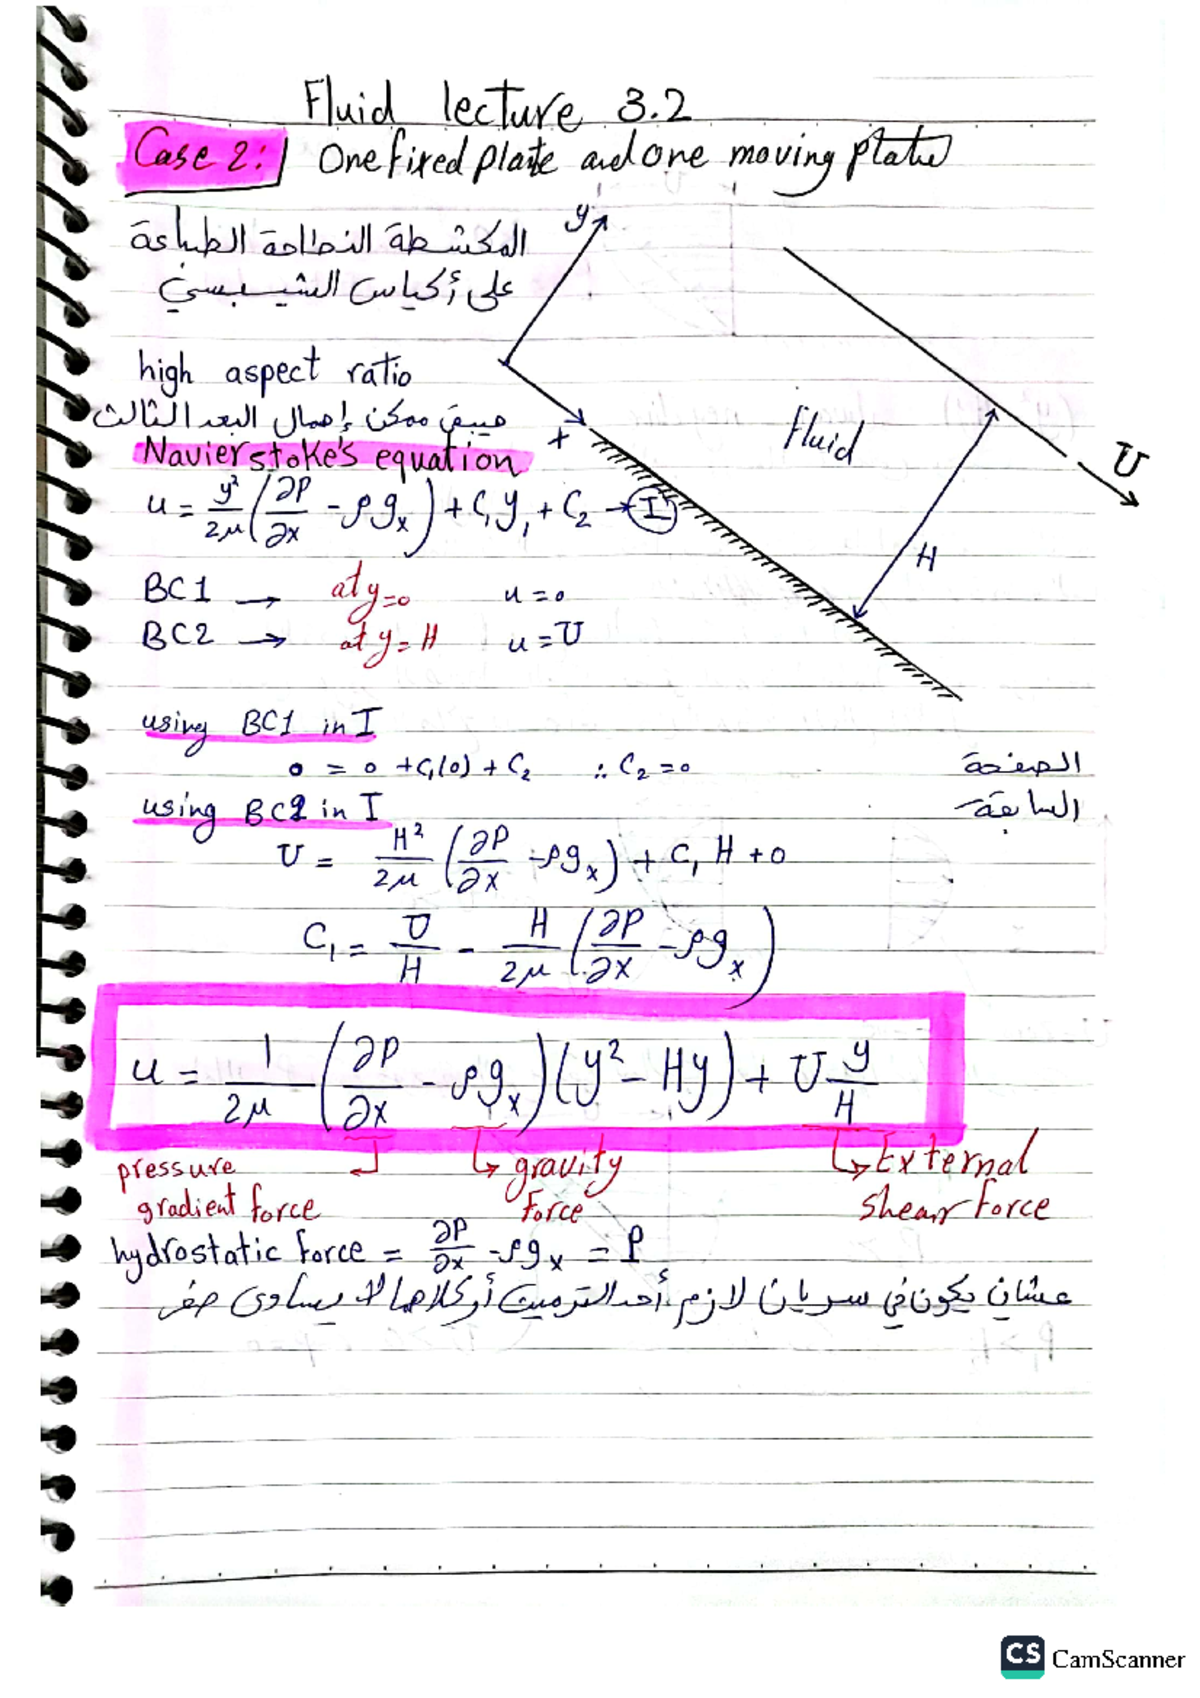 Fluid lecture 3.2
Case 2: One fixed plate and one moving plate
المكشطة النطاحة الطباعة
على أكياس الشيبسي
y
x
Fluid
U
H
high aspect ratio
ممكن إهمال البعد الثالث
Navier stoke's equation
u = y²/2μ (∂P/∂x - ρg_x) + C₁y₁ + C₂ → I
BC1 → at y=0 u=0
BC2 → at y=H u=U
using BC1 in I
0 = 0 + C₁(0) + C₂ ∴ C₂=0
الصفحة
السابقة
using BC2 in I
U = H²/2μ (∂P/∂x - ρg_x) + C₁ H + 0
C₁ = U/H - H/2μ (∂P/∂x - ρg_x)
u = 1/2μ (∂P/∂x - ρg_x)(y² - Hy) + U y/H
pressure gradient force
gravity Force
External shear Force
hydrostatic force = ∂P/∂x - ρg_x = P
عشان يكون في سريان لازم أحد الترمين أو كلاهما لا يساوى صفر
CS CamScanner